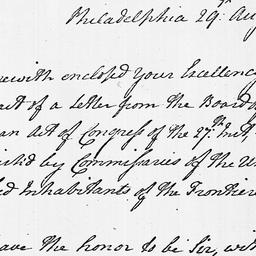 Philadelphia 29th Aug
ewith enclosed your Excellency
act of a Letter from the Board of
an Act of Congress of the 27th Inst,
by Commissaries of the
ed Inhabitants of the Frontier
ave the honor to be Sir, with